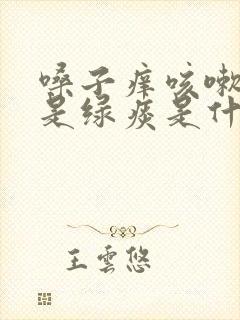 嗓子痒咳嗽
是绿痰是什
王雲悠